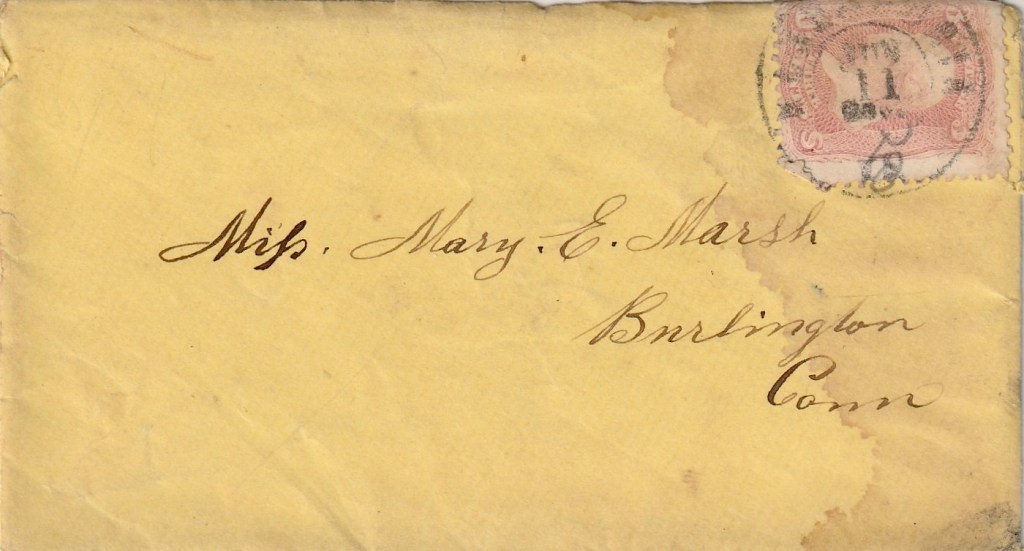 JUN
11
Miss. Mary. E. Marsh
Burlington
Conn